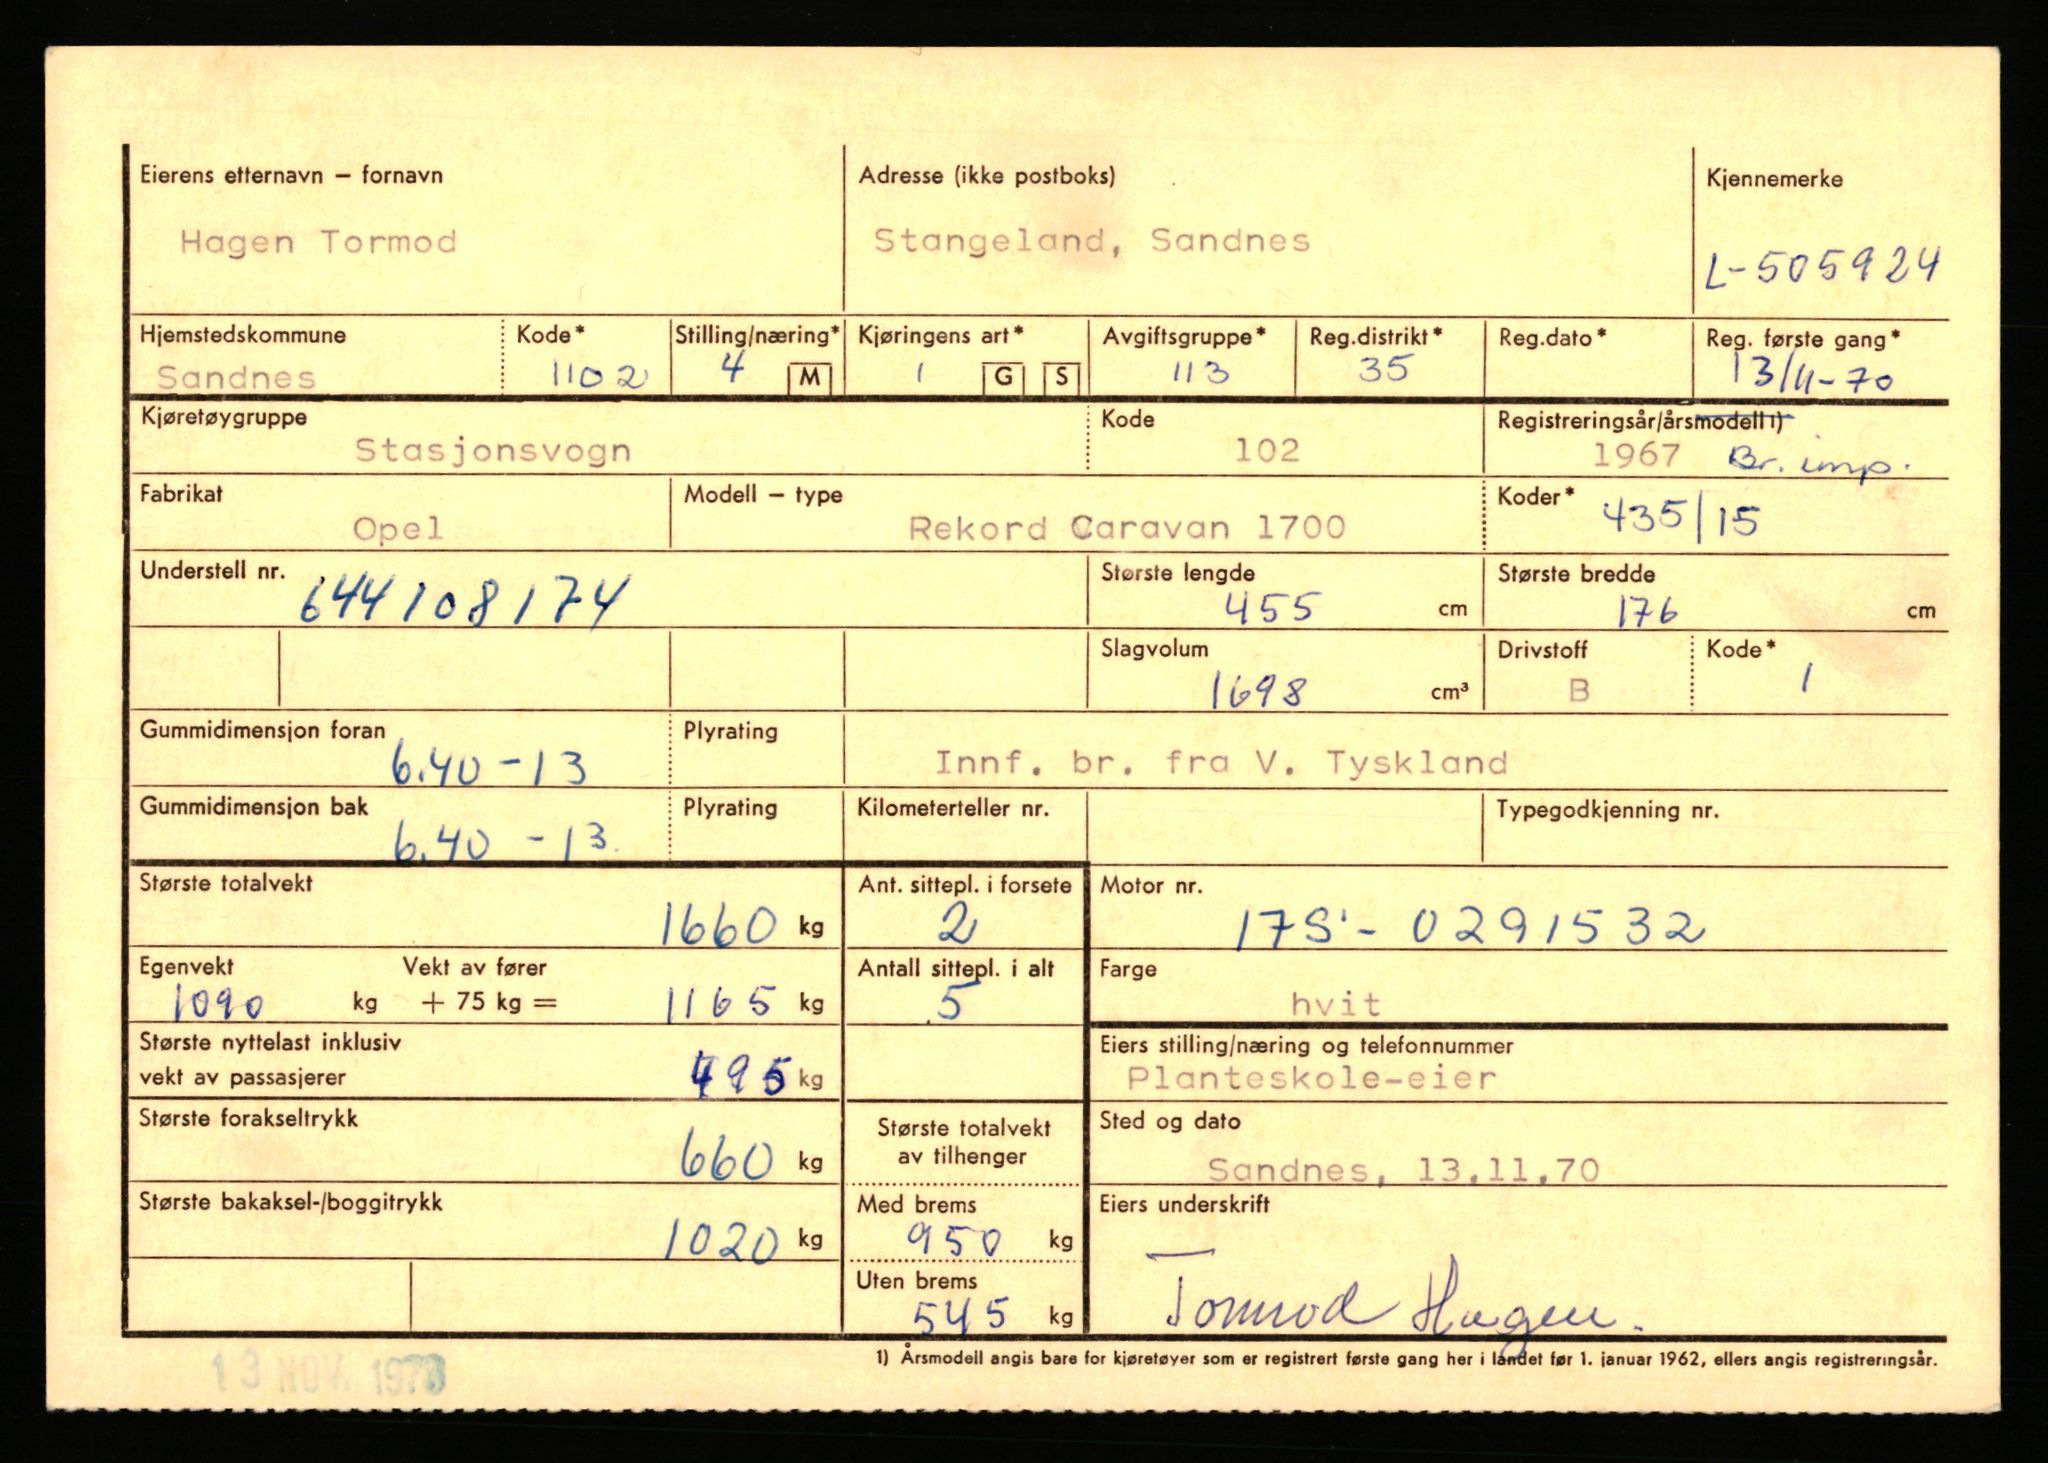 Eierens etternavn – fornavn
Hagen Tormod
Adresse (ikke postboks)
Stangeland, Sandnes
Kjennemerke
L-505924
Hjemstedskommune
Sandnes
Kode*
1102
Stilling/næring*
4 M
Kjøringens art*
1 G S
Avgiftsgruppe*
113
Reg.distrikt*
35
Reg.dato*
Reg. første gang*
13/11-70
Kjøretøygruppe
Stasjonsvogn
Kode
102
Registreringsår/årsmodell1)
1967 Br. imp.
Fabrikat
Opel
Modell – type
Rekord Caravan 1700
Koder*
435/15
Understell nr.
644108174
Største lengde
455 cm
Største bredde
176 cm
Slagvolum
1698 cm³
Drivstoff
B
Kode*
1
Gummidimensjon foran
6.40-13
Plyrating
Innf. br. fra V. Tyskland
Gummidimensjon bak
6.40 -13
Plyrating
Kilometerteller nr.
Typegodkjenning nr.
Største totalvekt
1660 kg
Ant. sittepl. i forsete
2
Motor nr.
17S - 0291532
Egenvekt
1090 kg
Vekt av fører
+ 75 kg = 1165 kg
Antall sittepl. i alt
5
Farge
hvit
Største nyttelast inklusiv
vekt av passasjerer 495 kg
Eiers stilling/næring og telefonnummer
Planteskole-eier
Største forakseltrykk
660 kg
Største totalvekt
av tilhenger
Sted og dato
Sandnes, 13.11.70
Største bakaksel-/boggitrykk
1020 kg
Med brems
950 kg
Uten brems
545 kg
Eiers underskrift
Tormod Hagen.
1) Årsmodell angis bare for kjøretøyer som er registrert første gang her i landet før 1. januar 1962, ellers angis registreringsår.
13 NOV. 1970